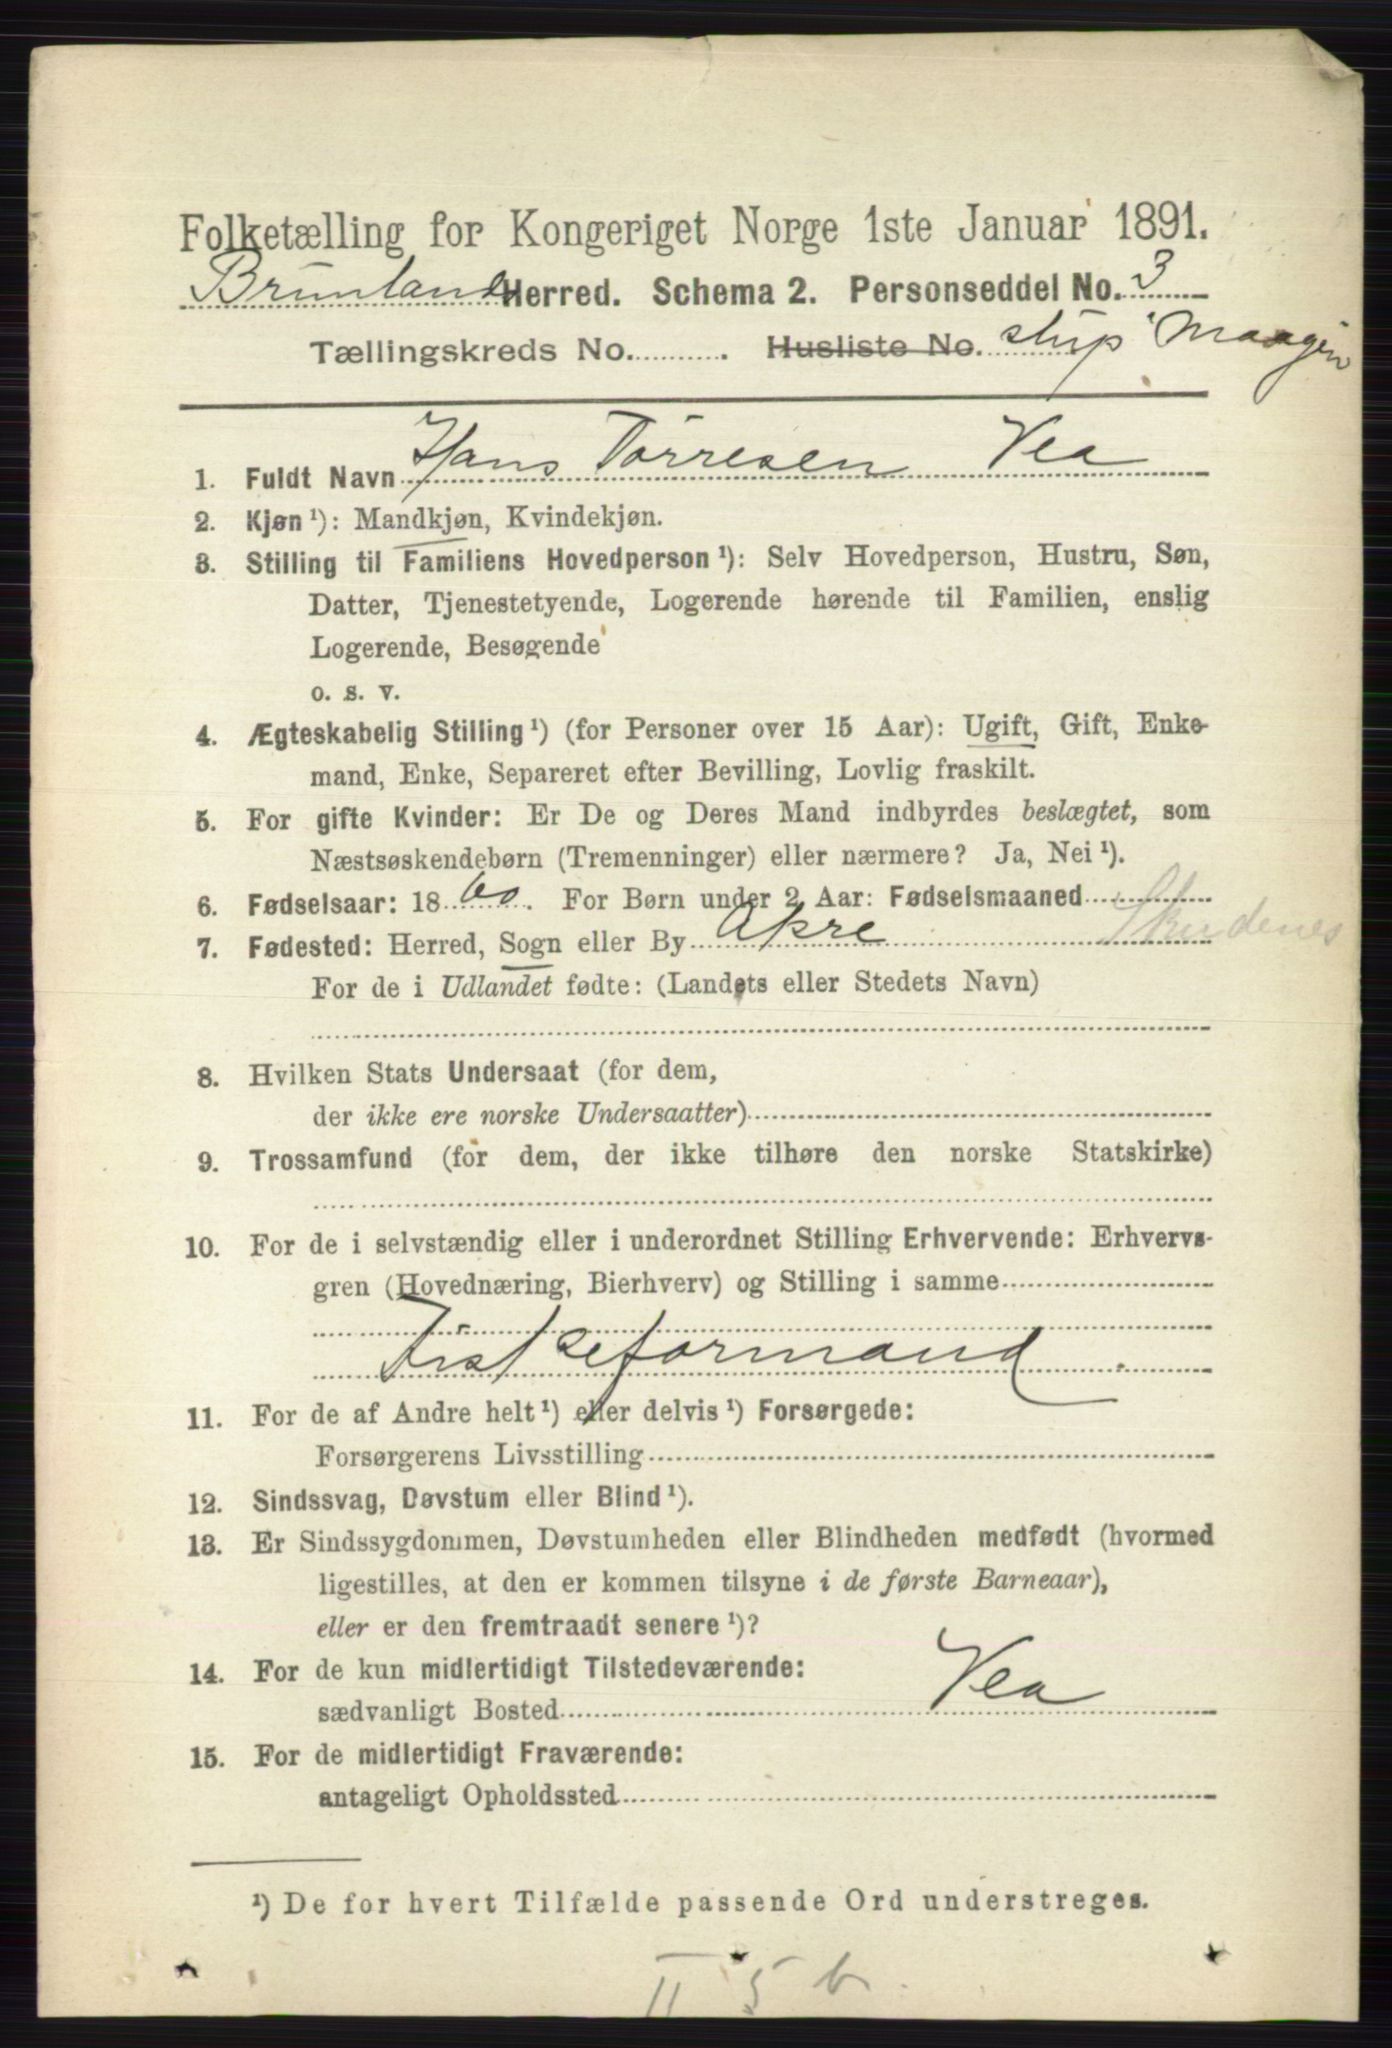 Folketælling for Kongeriget Norge 1ste Januar 1891.
Brunlanes Herred. Schema 2. Personseddel No. 3
Tællingskreds No. . Husliste No. Maagen
1. Fuldt Navn Hans Tørresen Vea
2. Kjøn ¹): Mandkjøn, Kvindekjøn.
3. Stilling til Familiens Hovedperson ¹): Selv Hovedperson, Hustru, Søn,
Datter, Tjenestetyende, Logerende hørende til Familien, enslig
Logerende, Besøgende
o. s. v.
4. Ægteskabelig Stilling ¹) (for Personer over 15 Aar): Ugift, Gift, Enke-
mand, Enke, Separeret efter Bevilling, Lovlig fraskilt.
5. For gifte Kvinder: Er De og Deres Mand indbyrdes beslægtet, som
Næstsøskendebørn (Tremenninger) eller nærmere? Ja, Nei ¹).
6. Fødselsaar: 18 60. For Børn under 2 Aar: Fødselsmaaned
7. Fødested: Herred, Sogn eller By Akre Skudenes
For de i Udlandet fødte: (Landets eller Stedets Navn)
8. Hvilken Stats Undersaat (for dem,
der ikke ere norske Undersaatter)
9. Trossamfund (for dem, der ikke tilhøre den norske Statskirke)
10. For de i selvstændig eller i underordnet Stilling Erhvervende: Erhvervs-
gren (Hovednæring, Bierhverv) og Stilling i samme
Fiskeformand.
11. For de af Andre helt ¹) eller delvis ¹) Forsørgede:
Forsørgerens Livsstilling
12. Sindssvag, Døvstum eller Blind ¹).
13. Er Sindssygdommen, Døvstumheden eller Blindheden medfødt (hvormed
ligestilles, at den er kommen tilsyne i de første Barneaar),
eller er den fremtraadt senere ¹)?
14. For de kun midlertidigt Tilstedeværende:
sædvanligt Bosted Vea
15. For de midlertidigt Fraværende:
antageligt Opholdssted
¹) De for hvert Tilfælde passende Ord understreges.
II 5 b.